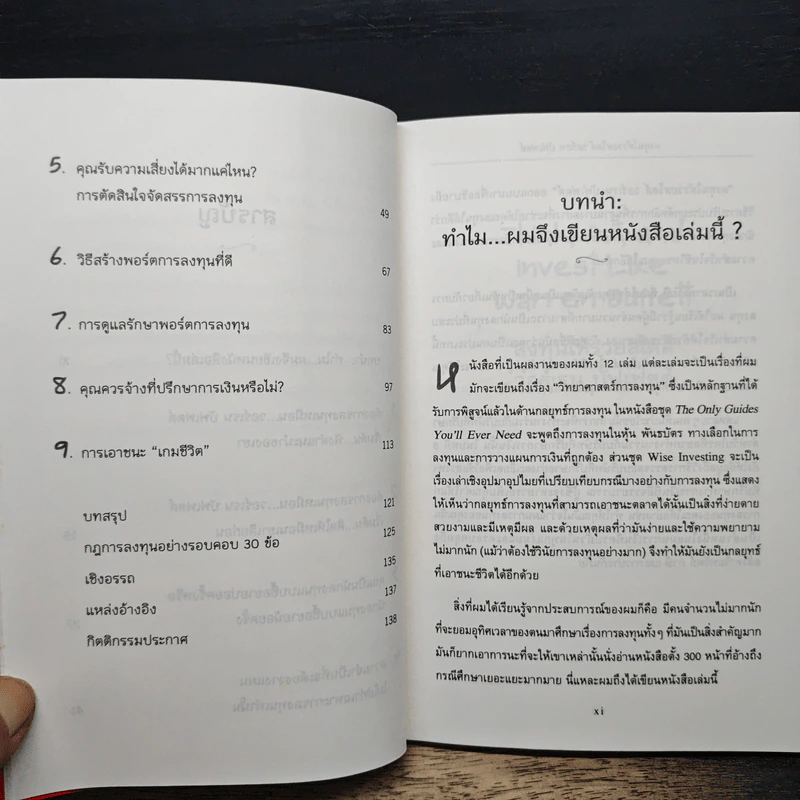 5. คุณรับความเสี่ยงได้มากแค่ไหน?
การตัดสินใจจัดสรรการลงทุน 49
6. วิธีสร้างพอร์ตการลงทุนที่ดี 67
7. การดูแลรักษาพอร์ตการลงทุน 83
8. คุณควรจ้างที่ปรึกษาการเงินหรือไม่? 97
9. การเอาชนะ “เกมชีวิต” 113
บทสรุป 121
กฎการลงทุนอย่างรอบคอบ 30 ข้อ 125
เชิงอรรถ 135
แหล่งอ้างอิง 137
กิตติกรรมประกาศ 138
บทนำ:
ทำไม...ผมจึงเขียนหนังสือเล่มนี้ ?
หนังสือที่เป็นผลงานของผมทั้ง 12 เล่ม แต่ละเล่มจะเป็นเรื่องที่ผม
มักจะเขียนถึงเรื่อง “วิทยาศาสตร์การลงทุน” ซึ่งเป็นหลักฐานที่ได้
รับการพิสูจน์แล้วในด้านกลยุทธ์การลงทุน ในหนังสือชุด The Only Guides
You'll Ever Need จะพูดถึงการลงทุนในหุ้น พันธบัตร ทางเลือกในการ
ลงทุนและการวางแผนการเงินที่ถูกต้อง ส่วนชุด Wise Investing จะเป็น
เรื่องเล่าเชิงอุปมาอุปไมยที่เปรียบเทียบกรณีบางอย่างกับการลงทุน ซึ่งแสดง
ให้เห็นว่ากลยุทธ์การลงทุนที่สามารถเอาชนะตลาดได้นั้นเป็นสิ่งที่ง่ายดาย
สวยงามและมีเหตุมีผล และด้วยเหตุผลที่ว่ามันง่ายและใช้ความพยายาม
ไม่มากนัก (แม้ว่าต้องใช้วินัยการลงทุนอย่างมาก) จึงทำให้มันยังเป็นกลยุทธ์
ที่เอาชนะชีวิตได้อีกด้วย
สิ่งที่ผมได้เรียนรู้จากประสบการณ์ของผมก็คือ มีคนจำนวนไม่มากนัก
ที่จะยอมอุทิศเวลาของตนมาศึกษาเรื่องการลงทุนทั้งๆ ที่มันเป็นสิ่งสำคัญมาก
มันก็ยากเอาการนะที่จะให้เขาเหล่านั้นนั่งอ่านหนังสือตั้ง 300 หน้าที่อ้างถึง
กรณีศึกษาเยอะแยะมากมาย นี่แหละผมถึงได้เขียนหนังสือเล่มนี้
xi